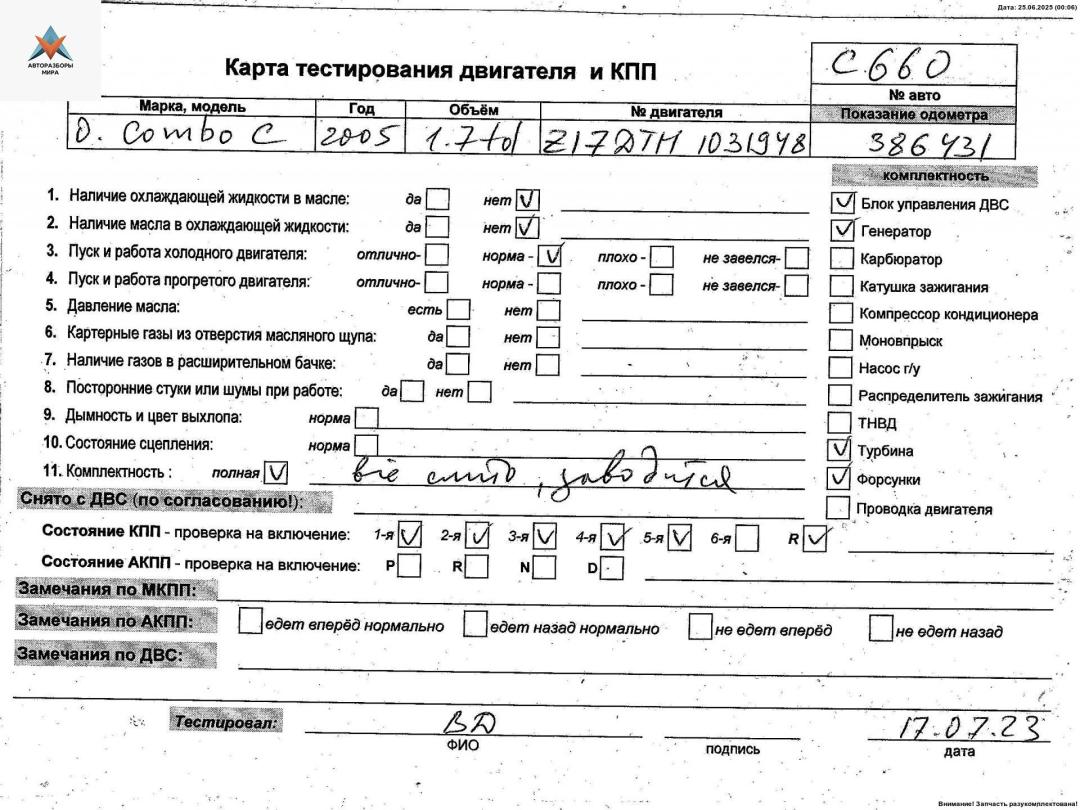 Дата: 25.06.2025 (00:06)
АВТОРАЗБОРЫ
МИРА
Карта тестирования двигателя и КПП
C660
№ авто
Марка, модель Год Объём № двигателя Показание одометра
O. Combo C 2005 1.7td Z17DTH 1031948 386431
комплектность
1. Наличие охлаждающей жидкости в масле: да нет V
2. Наличие масла в охлаждающей жидкости: да нет V
3. Пуск и работа холодного двигателя: отлично- норма - V плохо - не завелся-
4. Пуск и работа прогретого двигателя: отлично- норма - плохо - не завелся-
5. Давление масла: есть нет
6. Картерные газы из отверстия масляного щупа: да нет
7. Наличие газов в расширительном бачке: да нет
8. Посторонние стуки или шумы при работе: да нет
9. Дымность и цвет выхлопа: норма
10. Состояние сцепления: норма
11. Комплектность : полная V все снято, заводится
V Блок управления ДВС
V Генератор
Карбюратор
Катушка зажигания
Компрессор кондиционера
Моновпрыск
Насос г/у
Распределитель зажигания
ТНВД
V Турбина
V Форсунки
Проводка двигателя
Снято с ДВС (по согласованию!):
Состояние КПП - проверка на включение: 1-я V 2-я V 3-я V 4-я V 5-я V 6-я R V
Состояние АКПП - проверка на включение: P R N D
Замечания по МКПП:
Замечания по АКПП: едет вперёд нормально едет назад нормально не едет вперёд не едет назад
Замечания по ДВС:
Тестировал: ВД 17.07.23
ФИО подпись дата
Внимание! Запчасть разукомплектована!